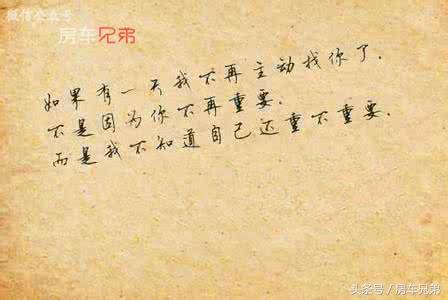 微信公众号
房车兄弟
如果有一天我不再主动找你了.
不是因为你不再重要.
而是我不知道自己还重不重要.
头条号 / 房车兄弟